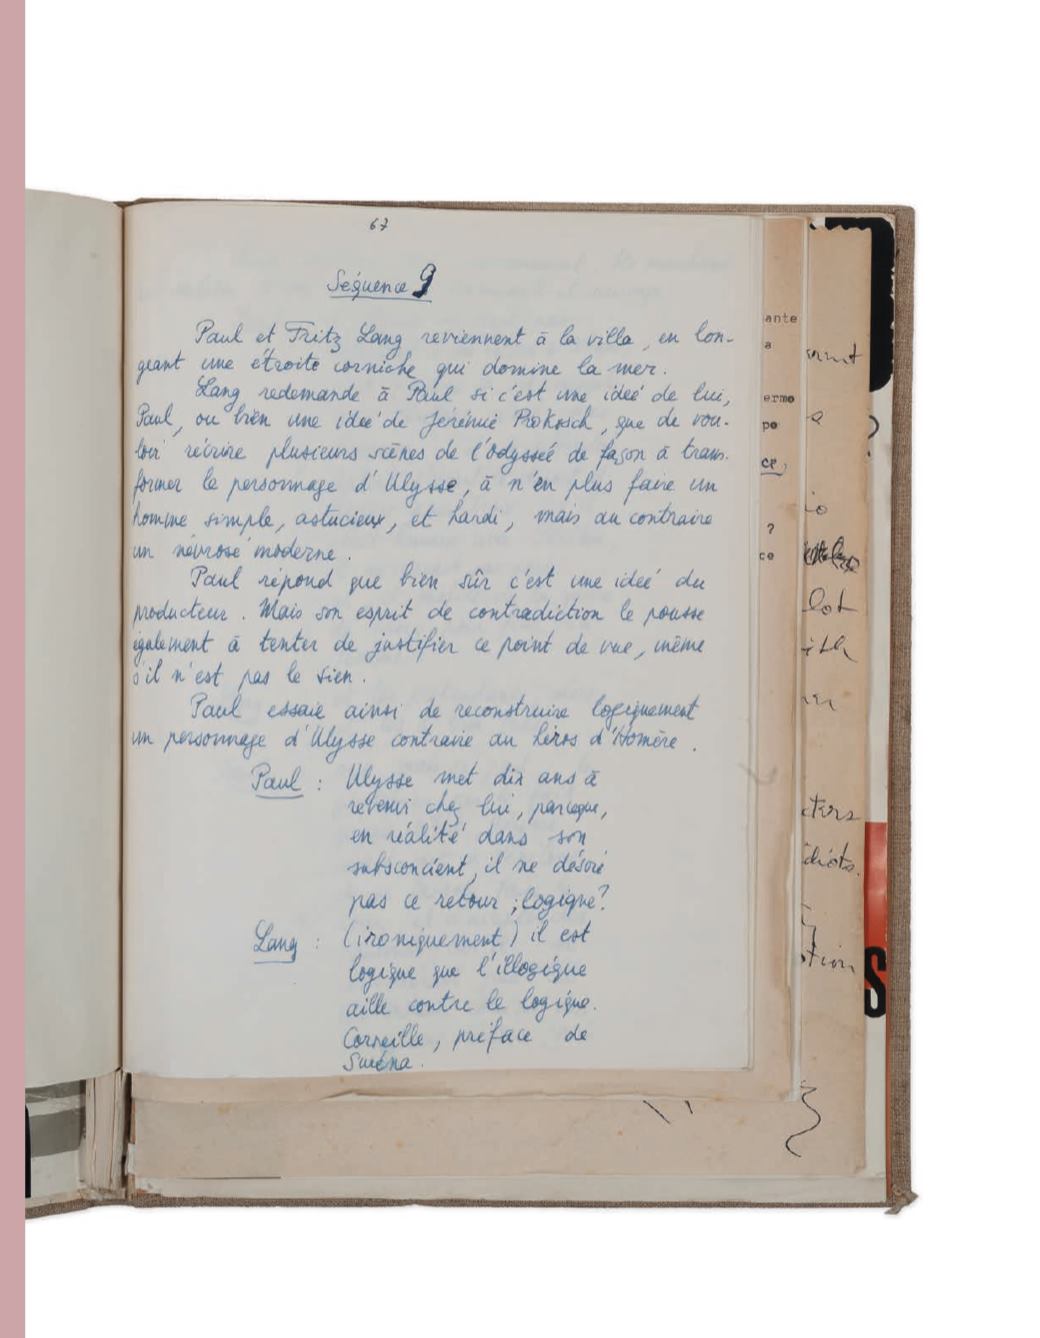 67
Séquence 9
Paul et Fritz Lang reviennent à la villa, en lon-
geant une étroite corniche qui domine la mer.
Lang redemande à Paul si c'est une idée de lui,
Paul, ou bien une idée de Jérémie Prokosch, que de vou-
loir récrire plusieurs scènes de l'Odyssée de façon à trans-
former le personnage d'Ulysse, à n'en plus faire un
homme simple, astucieux, et hardi, mais au contraire
un névrosé moderne.
Paul répond que bien sûr c'est une idée du
producteur. Mais son esprit de contradiction le pousse
également à tenter de justifier ce point de vue, même
s'il n'est pas le sien.
Paul essaie ainsi de reconstruire logiquement
un personnage d'Ulysse contraire au héros d'Homère.
Paul : Ulysse met dix ans à
revenir chez lui, parceque,
en réalité dans son
subsconcient, il ne désire
pas ce retour ; logique?
Lang : (ironiquement) il est
logique que l'illogique
aille contre le logique.
Corneille, préface de
Suréna.
ante
a
ermo
po
ce,
?
ce
lot
ith
diots.
S